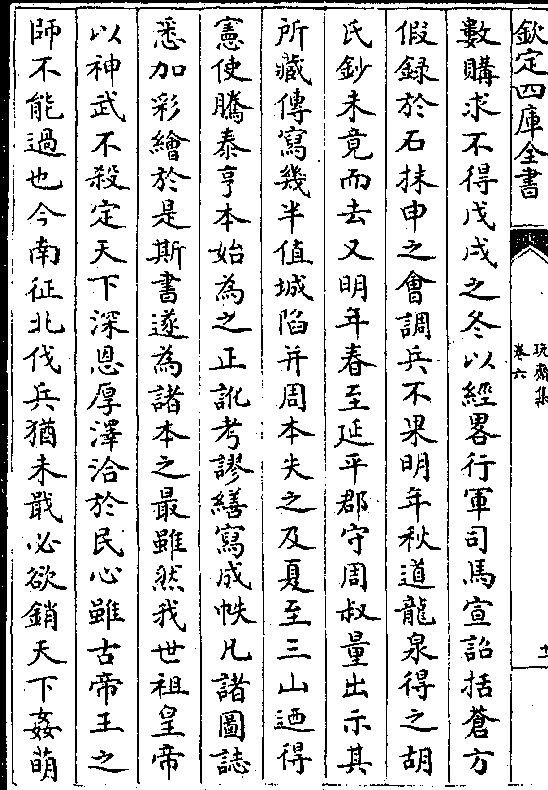 欽定四庫全書
玩齋集
卷六
十一
數購求不得戊戌之冬以經畧行軍司馬宣詔括蒼方
假錄於石抹申之會調兵不果明年秋道龍泉得之胡
氏鈔未竟而去又明年春至延平郡守周叔量出示其
所藏傳寫幾半值城陷并周本失之及夏至三山迺得
憲使騰泰亨本始為之正訛考謬繕寫成帙凡諸圖誌
悉加彩繪於是斯書遂為諸本之最雖然我世祖皇帝
以神武不殺定天下深恩厚澤洽於民心雖古帝王之
師不能過也今南征北伐兵猶未戢必欲銷天下姦萌